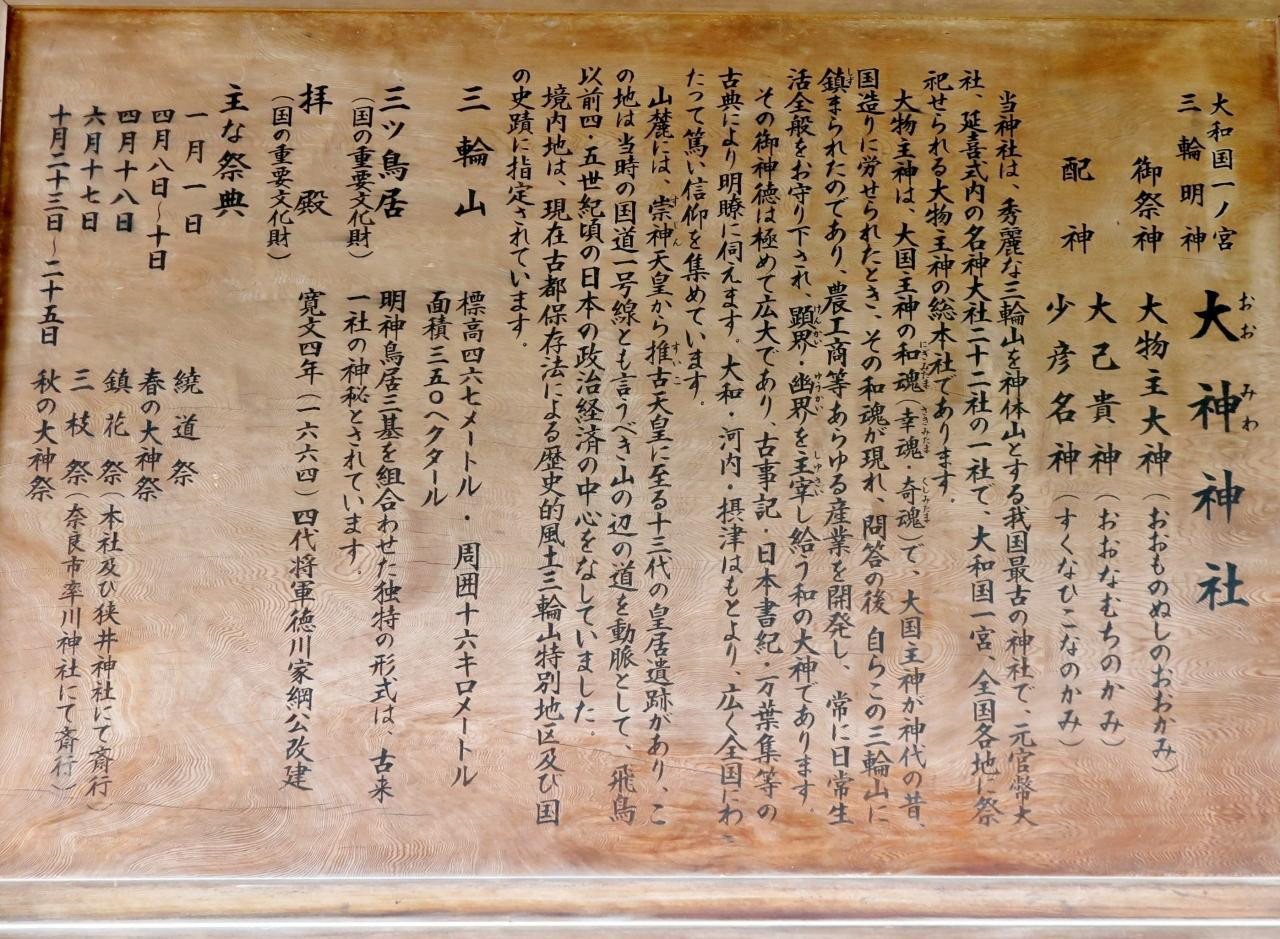 大和国一ノ宮
三輪明神
大神神社
おお みわ
御祭神 大物主大神(おおものぬしのおおかみ)
配神 大己貴神(おおなむちのかみ)
少彦名神(すくなひこなのかみ)
当神社は、秀麗な三輪山を神体山とする我国最古の神社で、元官幣大
社、延喜式内の名神大社二十二社の一社で、大和国一宮、全国各地に祭
祀せられる大物主神の総本社であります。
大物主神は、大国主神の和魂(幸魂・奇魂)で、大国主神が神代の昔、
にぎみたま さきみたま くしみたま
国造りに労せられたとき、その和魂が現れ、問答の後 自らこの三輪山に
鎮まられたのであり、農工商等あらゆる産業を開発し、常に日常生
しず
活全般をお守り下され、顕界・幽界を主宰し給う和の大神であります。
けんかい ゆうかい しゅさい
その御神徳は極めて広大であり、古事記・日本書紀・万葉集等の
古典により明瞭に伺えます。大和・河内・摂津はもとより、広く全国にわ
たって篤い信仰を集めています。
山麓には、崇神天皇から推古天皇に至る十三代の皇居遺跡があり、こ
すじん すいこ
の地は当時の国道一号線とも言うべき山の辺の道を動脈として、飛鳥
以前四・五世紀頃の日本の政治経済の中心をなしていました。
境内地は、現在古都保存法による歴史的風土三輪山特別地区及び国
の史蹟に指定されています。
三輪山 標高四六七メートル・周囲十六キロメートル
面積三五〇ヘクタール
三ツ鳥居 明神鳥居三基を組合わせた独特の形式は、古来
(国の重要文化財) 一社の神秘とされています。
拝殿 寛文四年(一六六四)四代将軍徳川家綱公改建
(国の重要文化財)
主な祭典
一月一日 繞道祭
四月八日~十日 春の大神祭
四月十八日 鎮花祭(本社及び狭井神社にて斎行)
六月十七日 三枝祭(奈良市率川神社にて斎行)
十月二十三日~二十五日 秋の大神祭